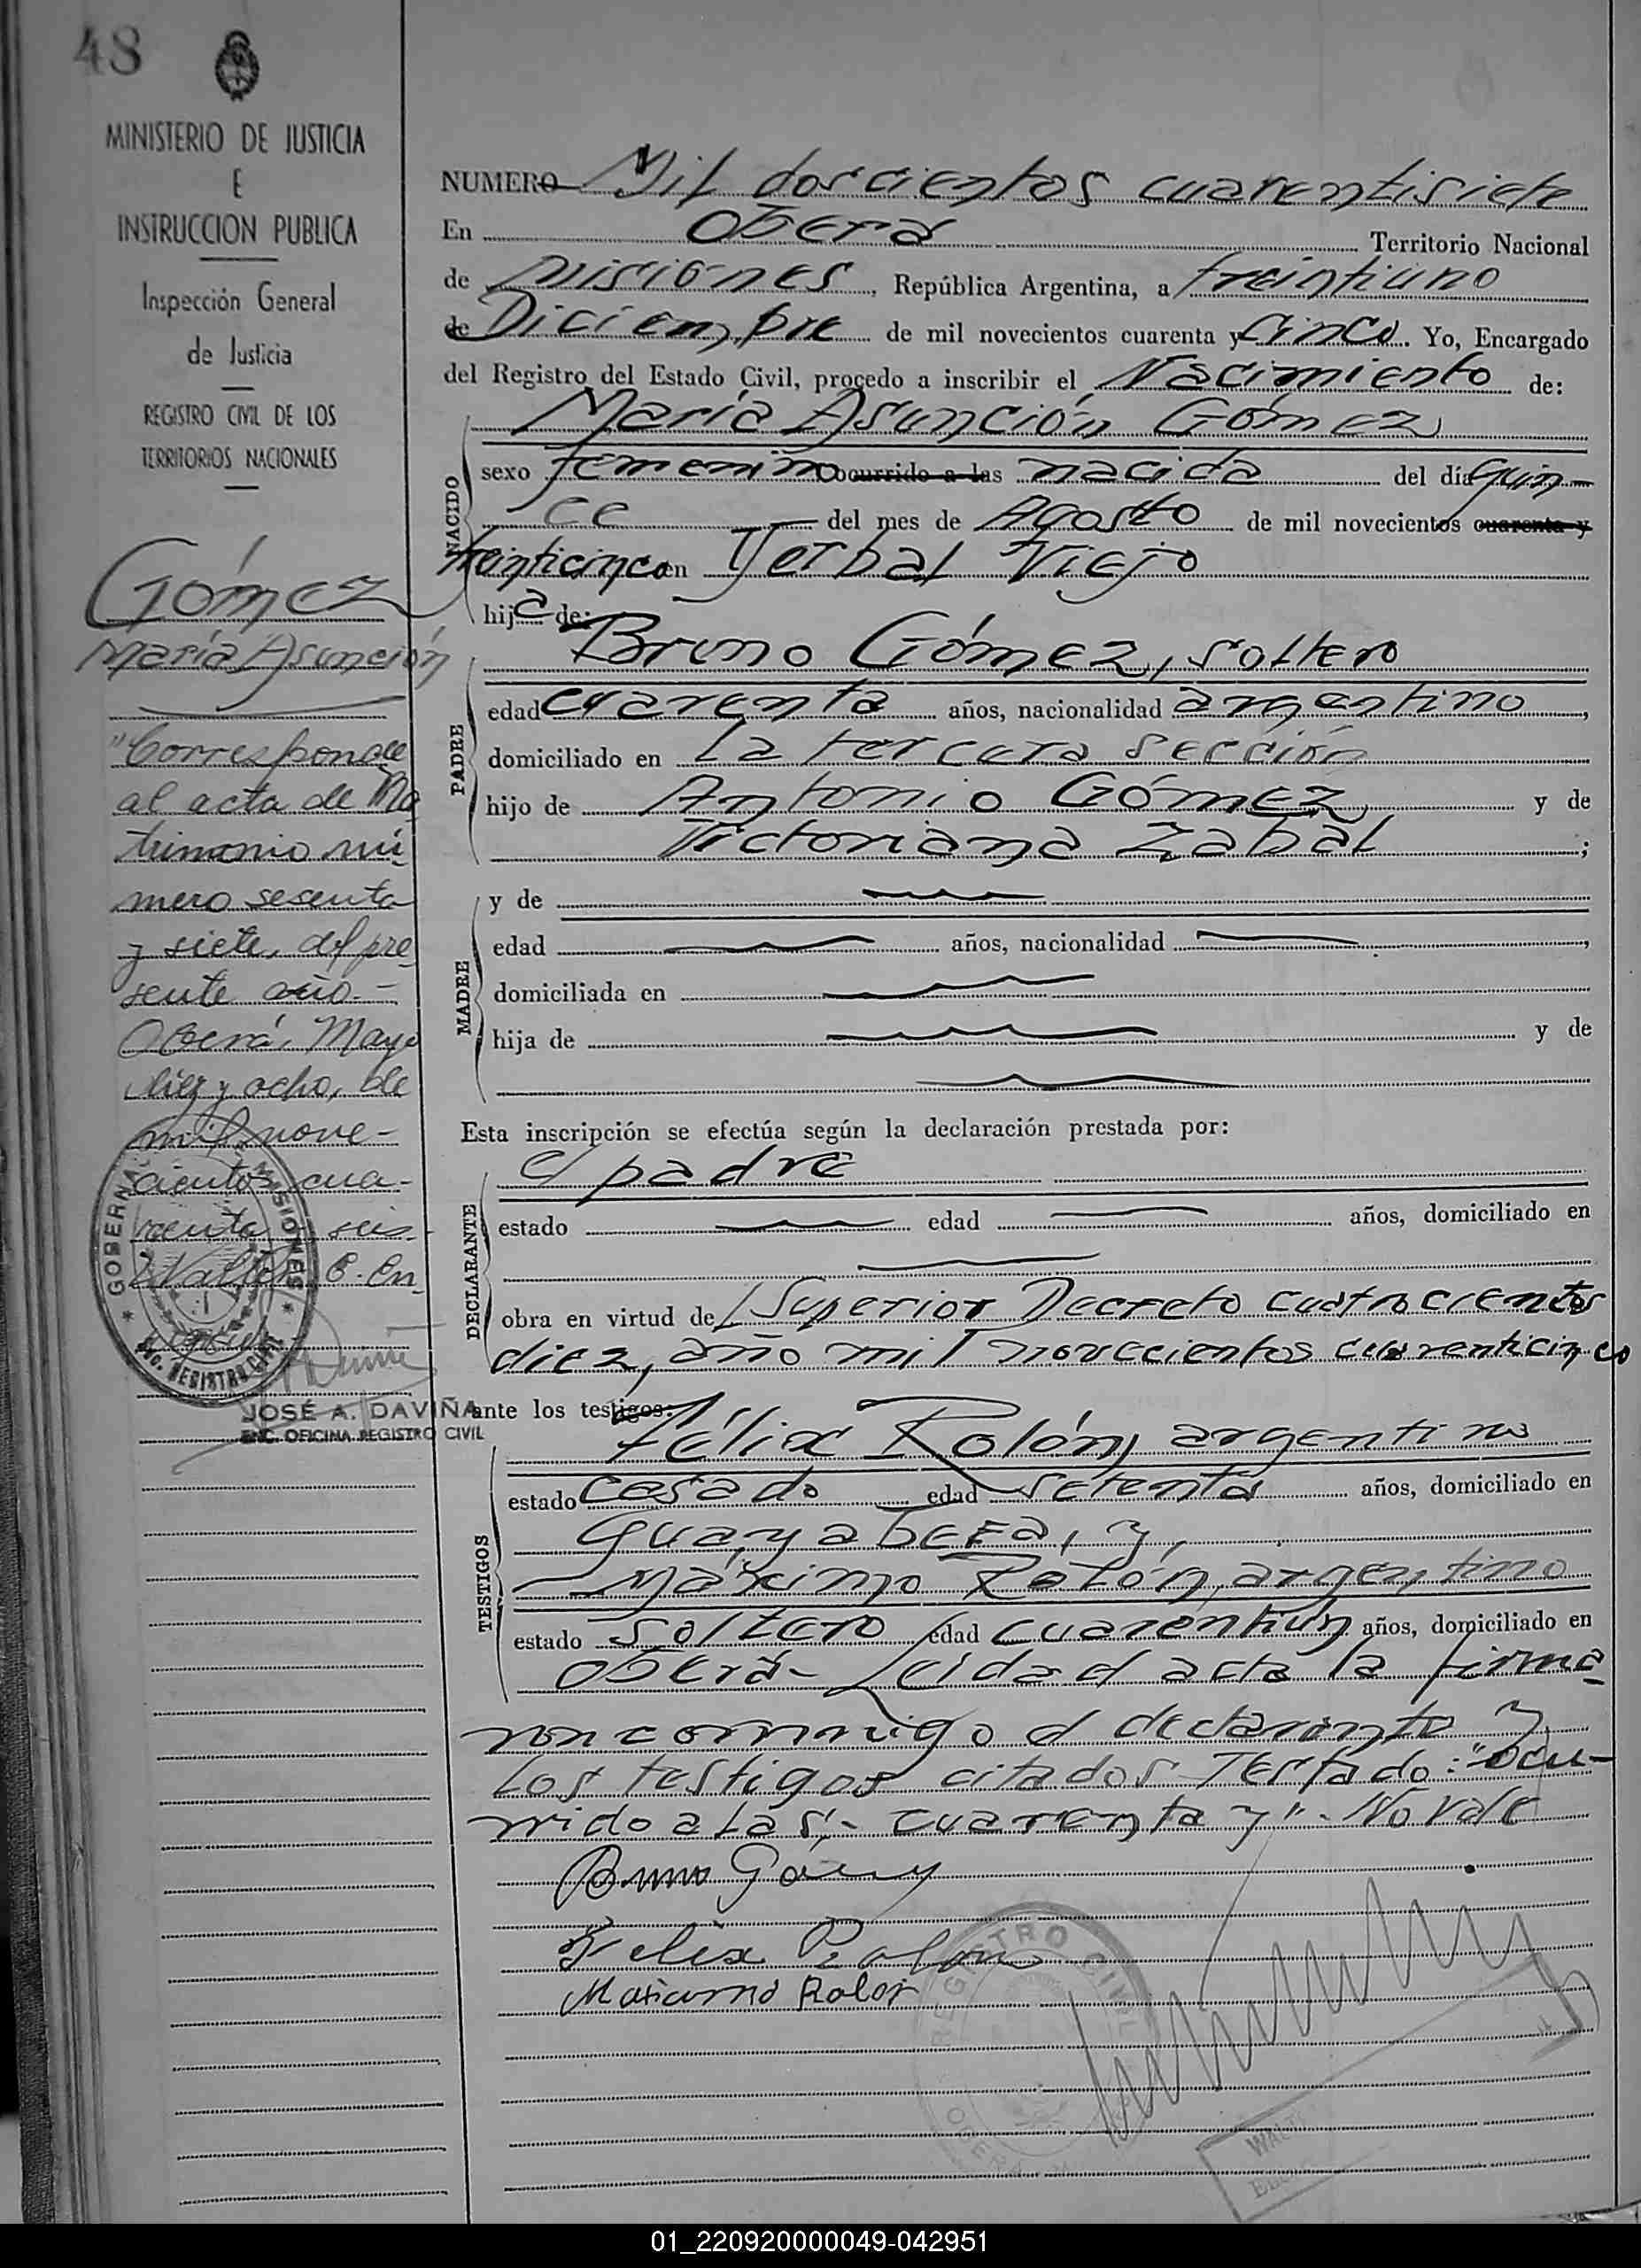 48
MINISTERIO DE JUSTICIA
E
INSTRUCCION PUBLICA
Inspección General
de Justicia
REGISTRO CIVIL DE LOS
TERRITORIOS NACIONALES
Gómez
María Asunción
"Corresponde
al acta de Ma
trimonio nú-
mero sesenta
y siete, del pre-
sente año.-
Oberá, Mayo
diez y ocho, de
mil nove-
cientos cua-
renta y seis.
Vale: E. En
GOBERNA MISIONES
ENC. REGISTRO CIVIL
JOSÉ A. DAVIÑA
ENC. OFICINA REGISTRO CIVIL
NUMERO Mil doscientos cuarentisiete
En Oberá Territorio Nacional
de Misiones, República Argentina, a treintiuno
de Diciembre de mil novecientos cuarenta y Cinco. Yo, Encargado
del Registro del Estado Civil, procedo a inscribir el Nacimiento de:
NACIDO
María Asunción Gómez
sexo femenino ocurrido a las nacida del día quin-
ce del mes de Agosto de mil novecientos cuarenta y
treinticinco en Yerbal Viejo
hija de:
PADRE
Bruno Gómez, soltero
edad cuarenta años, nacionalidad argentino,
domiciliado en la tercera sección
hijo de Antonio Gómez y de
Victoriana Zabal;
MADRE
y de
edad años, nacionalidad ,
domiciliada en
hija de y de
Esta inscripción se efectúa según la declaración prestada por:
DECLARANTE
el padre
estado edad años, domiciliado en
obra en virtud del Superior Decreto cuatrocientos
diez, año mil novecientos cuarenticinco
ante los testigos:
TESTIGOS
Félix Rolón, argentino
estado casado edad setenta años, domiciliado en
Guayabera, y
Máximo Rolón, argentino
estado soltero edad cuarentiún años, domiciliado en
Oberá- Leida el acta la firma-
ron conmigo el declarante y
los testigos citados Testado: "ocu-
rrido a las,- cuarenta y".- No vale
Bruno Gómez
Felix Rolon
Maximo Rolon
REGISTRO CIVIL
OBERA
01_220920000049-042951